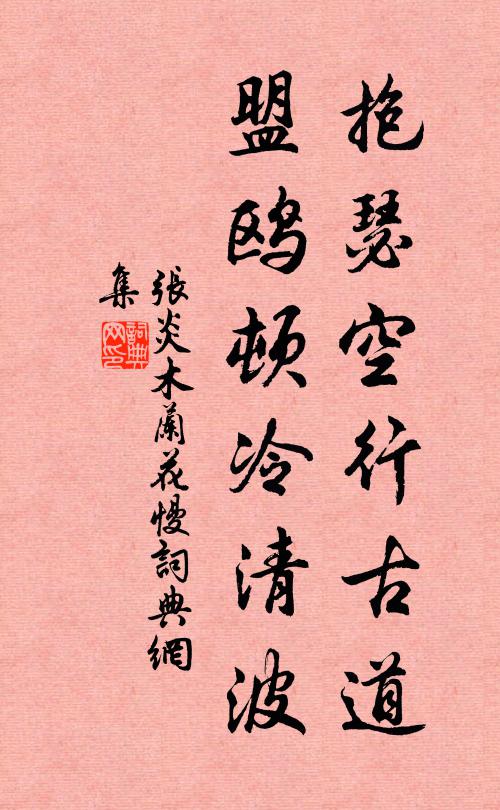 抱瑟空行古道
盟鸥顿冷清波
張炎木蘭花慢詞典網
集
詞典
网印